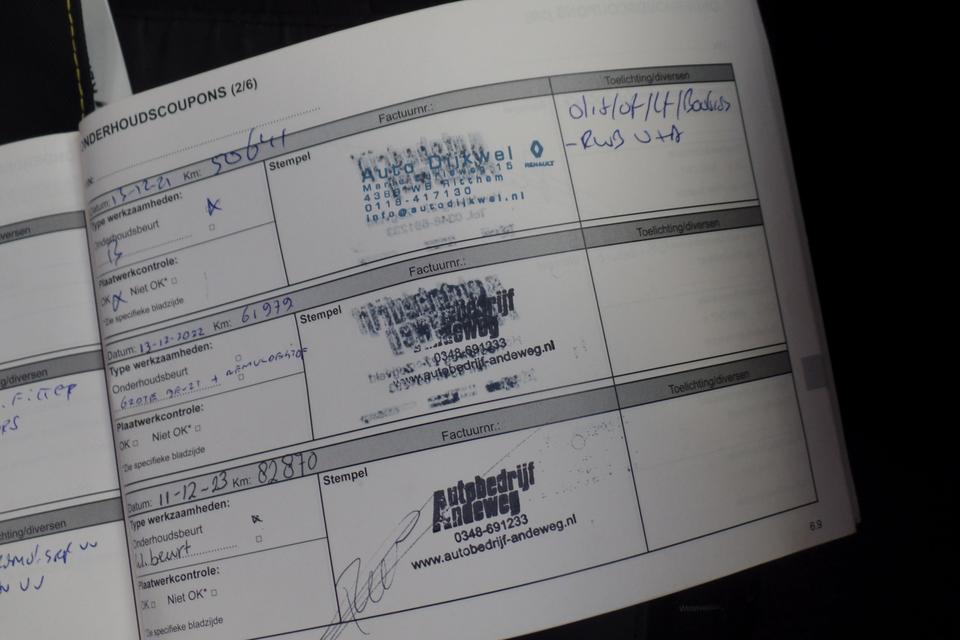 ONDERHOUDSCOUPONS (2/6)
Datum: 13-12-21 Km: 50641 Factuurnr.: Toelichting/diversen
Type werkzaamheden:
Onderhoudsbeurt
Plaatwerkcontrole:
OK Niet OK*
*De specifieke bladzijde
Stempel
Auto Dijkwel
4389 WB Ritthem
0118-417130
info@autodijkwel.nl
RENAULT
Datum: 13-12-2022 Km: 61979 Factuurnr.: Toelichting/diversen
Type werkzaamheden:
Onderhoudsbeurt
GROTE BEURT +
Plaatwerkcontrole:
OK Niet OK*
*De specifieke bladzijde
Stempel
Andeweg
0348-691233
www.autobedrijf-andeweg.nl
Datum: 11-12-23 Km: 82870 Factuurnr.: Toelichting/diversen
Type werkzaamheden:
Onderhoudsbeurt
beurt
Plaatwerkcontrole:
OK Niet OK*
*De specifieke bladzijde
Stempel
Autobedrijf
Andeweg
0348-691233
www.autobedrijf-andeweg.nl
6.9